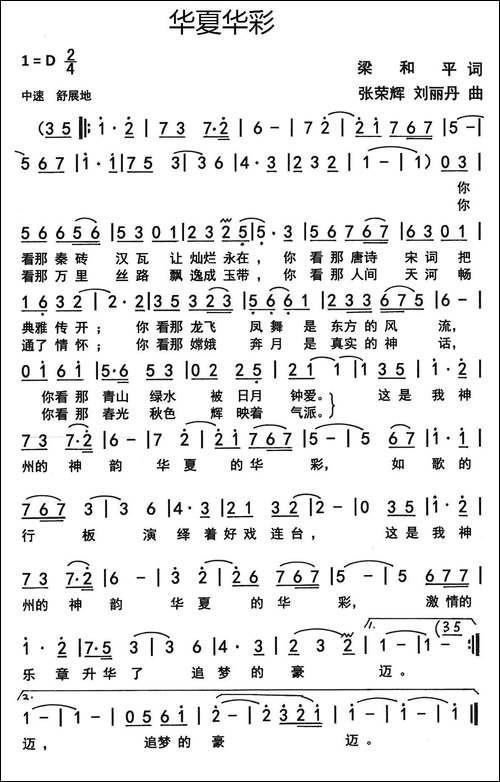 华夏华彩
1=D 2/4
梁和平词
中速 舒展地
张荣辉 刘丽丹 曲
(35 |: 1·2 | 73 7·2 | 6 - | 7 2 | 21 767 | 5 - |
567 | 1·1 | 175 3 | 36 | 4·3 | 232 | 1 - | 1) 03 |
你
你
5666 56 | 5301 | 2325 | 5·3 | 5676 67 | 6301 |
看那秦砖 汉瓦 让灿烂永在，你看那唐诗 宋词把
看那万里 丝路 飘逸成玉带，你看那人间 天河畅
1632 | 2·2 | 3535 323 | 5·666 | 2333 675 | 61 |
典雅传开；你看那龙飞 凤舞是东方的风 流，
通了情怀；你看那嫦娥 奔月是真实的神 话，
0161 | 5·6 53 | 02 25 | 21 | 1 35 | 1·2 |
你看那 青山 绿水 被日月 钟爱。 这是我神
你看那 春光 秋色 辉映着 气派。
73 7·2 | 6 - | 7 2 | 21 767 | 5 - | 56 | 1·1 |
州的神韵 华夏的华 彩，如歌的
767 3 | 3 6 | 4·3 | 21 32 | 2 - | 0 35 | 1·2 |
行 板 演绎着好戏连台， 这是我神
73 7·2 | 6 - | 3 2 | 26 767 | 5 - | 5 677 |
州的神韵 华夏的华 彩， 激情的
1·2 | 7·5 3 | 36 | 4·3 | 232 | 1. 1 - | 1 (35 :|
乐章升华了 追梦的豪 迈。
2. 1 - | 1 - | 0561 | 2 - | 2321 | 1 - | 1 - ||
迈， 追梦的豪 迈。